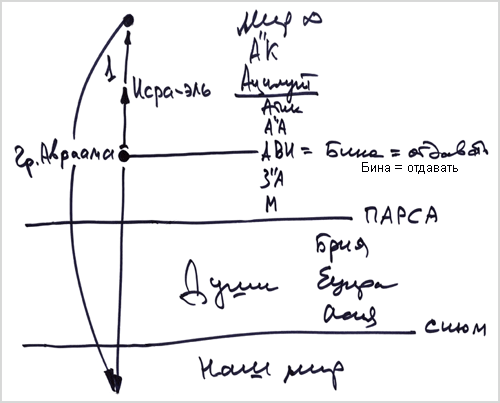 Мир ∞
А"К
1
Исра-эль
Ацилут
Атик
А"А
Гр. Авраама
АВИ = Бина = отдавать
Бина = отдавать
З"А
М
ПАРСА
Брия
Души
Ецира
Асия
СИЮМ
Наш мир